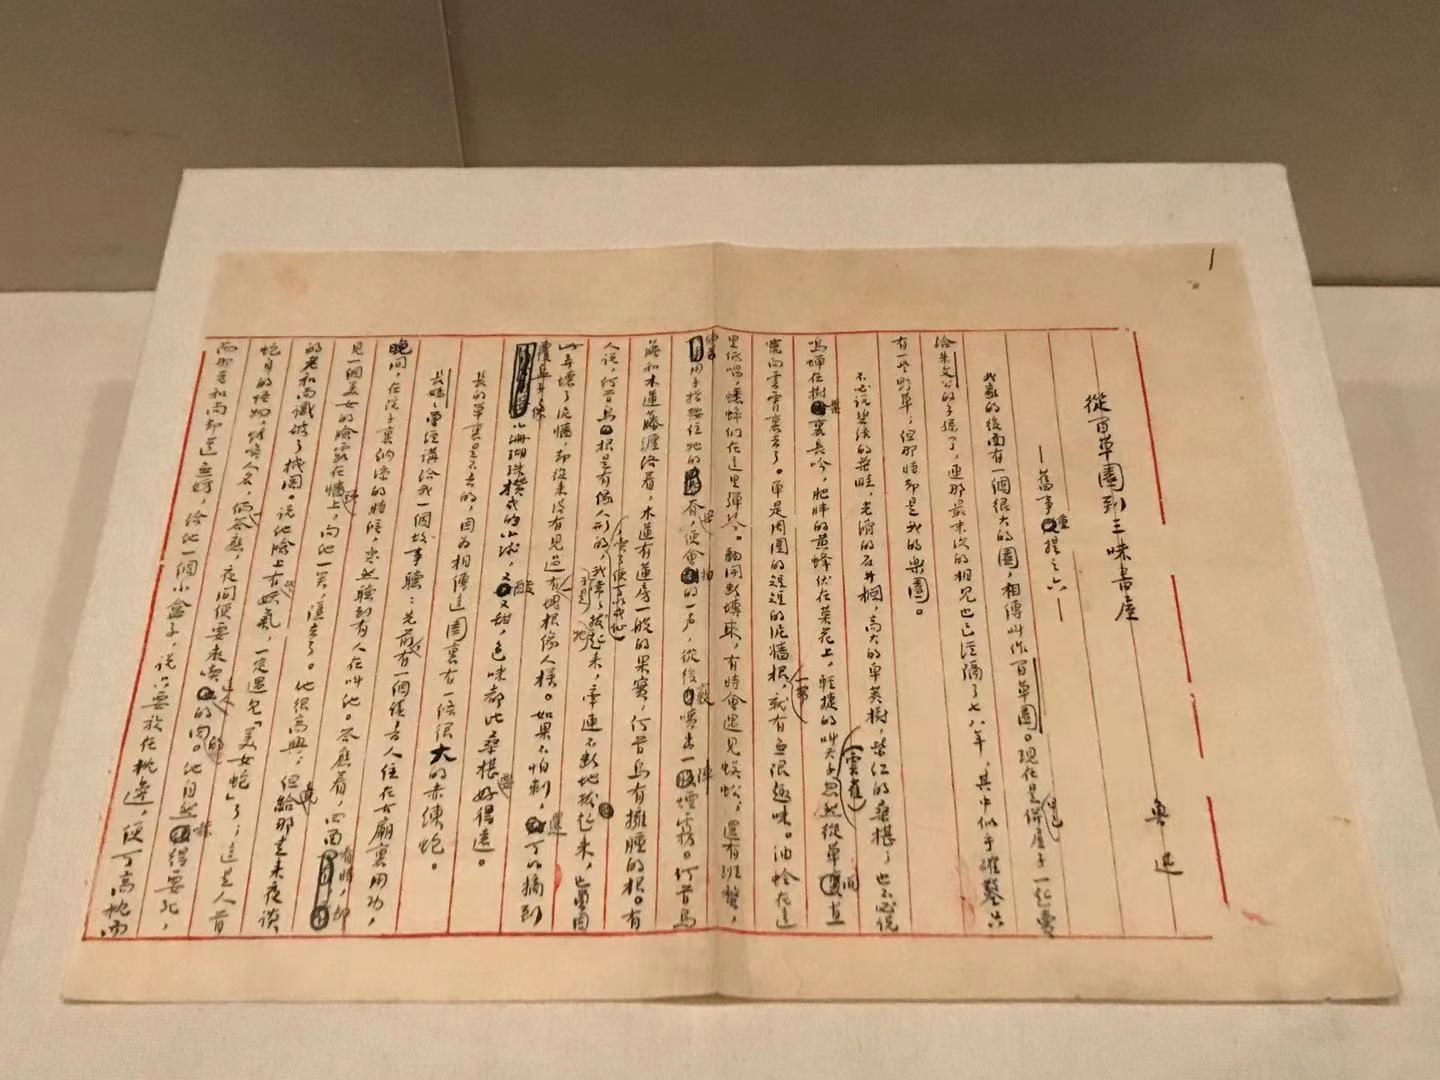 1
從百草園到三味書屋
——舊事重提之六——
魯迅
我家的後面有一個很大的園，相傳叫作百草園。現在是早已併屋子一起賣
給朱文公的子孫了，連那最末次的相見也已經隔了七八年，其中似乎確鑿只
有一些野草；但那時却是我的樂園。
不必說碧綠的菜畦，光滑的石井欄，高大的皂莢樹，紫紅的桑椹；也不必說
鳴蟬在樹葉裏長吟，肥胖的黃蜂伏在菜花上，輕捷的叫天子（雲雀）忽然從草間直
竄向雲霄裏去了。單是周圍的短短的泥牆根一帶，就有無限趣味。油蛉在這
里低唱，蟋蟀們在這里彈琴。翻開斷塼來，有時會遇見蜈蚣；還有斑蝥，
倘若用手指按住牠的脊梁，便會拍的一声，從後竅噴出一陣煙霧。何首烏
藤和木蓮藤纏絡着，木蓮有蓮房一般的果實，何首烏有擁腫的根。有
人說，何首烏根是有像人形的，吃了便可以成仙，我于是常常拔牠起來，牽連不斷地拔起來，也曾因
此弄壞了泥牆，却從來沒有見過有一塊根像人樣。如果不怕刺，還可以摘到
覆盆子，像小珊瑚珠攢成的小球，又酸又甜，色味都比桑椹要好得遠。
長的草裏是不去的，因為相傳這園裏有一條很大的赤練蛇。
長媽媽曾經講給我一個故事聽：先前，有一個讀書人住在古廟裏用功，
晚間，在院子裏納涼的時候，突然聽到有人在叫他。答應着，四面看時，却
見一個美女的臉露在牆頭上，向他一笑，隱去了。他很高興；但竟給那走來夜談
的老和尚識破了機關。說他臉上有些妖氣，一定遇見「美女蛇」了；這是人首
蛇身的怪物，能喚人名，倘一答應，夜間便要來吃這人的肉的。他自然嚇得要死，
而那老和尚却道無妨，給他一個小盒子，說只要放在枕邊，便可高枕而